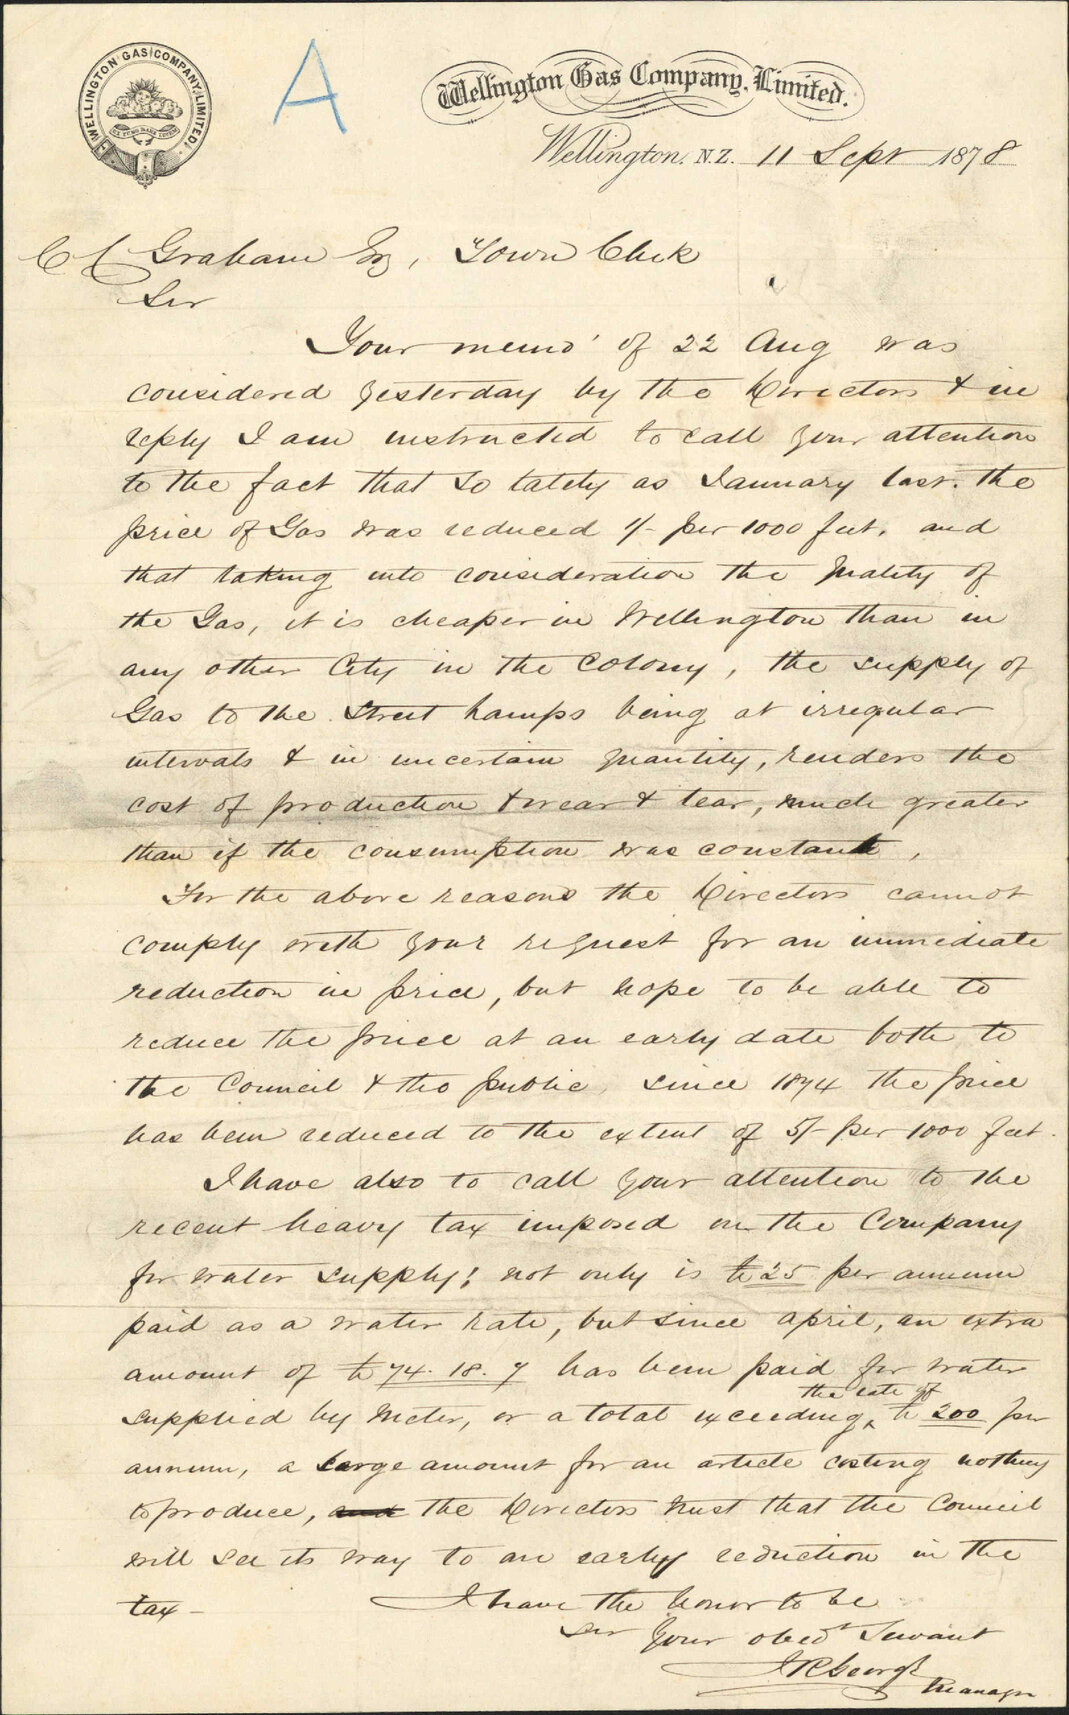 WELLINGTON GAS COMPANY LIMITED.
EX FUMO DARE LUCEM
A
Wellington Gas Company, Limited.
Wellington, N.Z. 11 Sept 1878
C C Graham Esq, Town Clerk
Sir
Your memo' of 22 Aug was
considered yesterday by the Directors & in
reply I am instructed to call your attention
to the fact that so lately as January last. the
price of Gas was reduced 1/- per 1000 feet. and
that taking into consideration the quality of
the Gas, it is cheaper in Wellington than in
any other City in the Colony, the supply of
Gas to the Street Lamps being at irregular
intervals & in uncertain quantity, renders the
cost of production & wear & tear, much greater
than if the consumption was constant,
For the above reasons the Directors cannot
comply with your request for an immediate
reduction in price, but hope to be able to
reduce the price at an early date both to
the Council & the public, since 1874 the price
has been reduced to the extent of 5/- per 1000 feet.
I have also to call your attention to the
recent heavy tax imposed on the Company
for water supply; not only is £25 per annum
paid as a water rate, but since april, an extra
amount of £74. 18. 7 has been paid for water
supplied by Meter, or a total exceeding the rate of £200 per
annum, a large amount for an article costing nothing
to produce, and the Directors trust that the Council
will see its way to an early reduction in the
tax - I have the honor to be
Sir Your obedt Servant
J R George
Manager